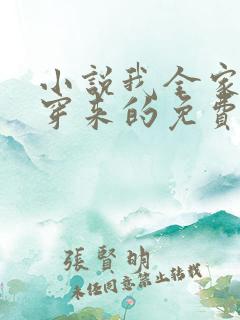 小說我全家
穿来的免費
張賢明
未经同意禁止转载